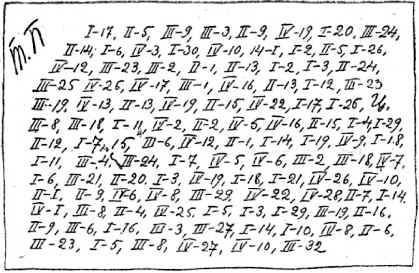 Т.П
I-17, II-5, III-9, III-3, II-9, IV-19, I-20, III-24,
II-14; I-6, IV-3, I-30, IV-10, 14-I, I-2, II-5, I-26,
IV-12, III-23, III-2, II-1, II-13, I-2, I-3, II-24,
III-25 IV-26, IV-17, III-1, IV-16, II-13, I-12, III-23
III-19, IV-13, II-13, IV-19, II-15, IV-22, I-17, I-26,
III-8, III-18, I-11, IV-2, II-2, IV-5, IV-16, II-15, I-4, I-29,
II-12, I-7, 15, III-6, IV-12, II-1, I-14, I-19, IV-9, I-18,
I-11, III-4. III-24, I-7, IV-5, IV-6, III-2, III-18, IV-7,
I-6, III-21, II-20, I-3, IV-19, I-18, I-21, IV-26, IV-10,
II-I, II-9, IV-6, IV-8, III-29, IV-22, IV-28, II-7, I-14,
IV-I, III-8, II-4, IV-25, I-5, I-3, I-29, III-19, II-16,
II-9, III-6, I-16, III-3, III-27, I-14, I-10, IV-8, II-6,
III-23, I-5, III-8, IV-27, IV-10, III-32